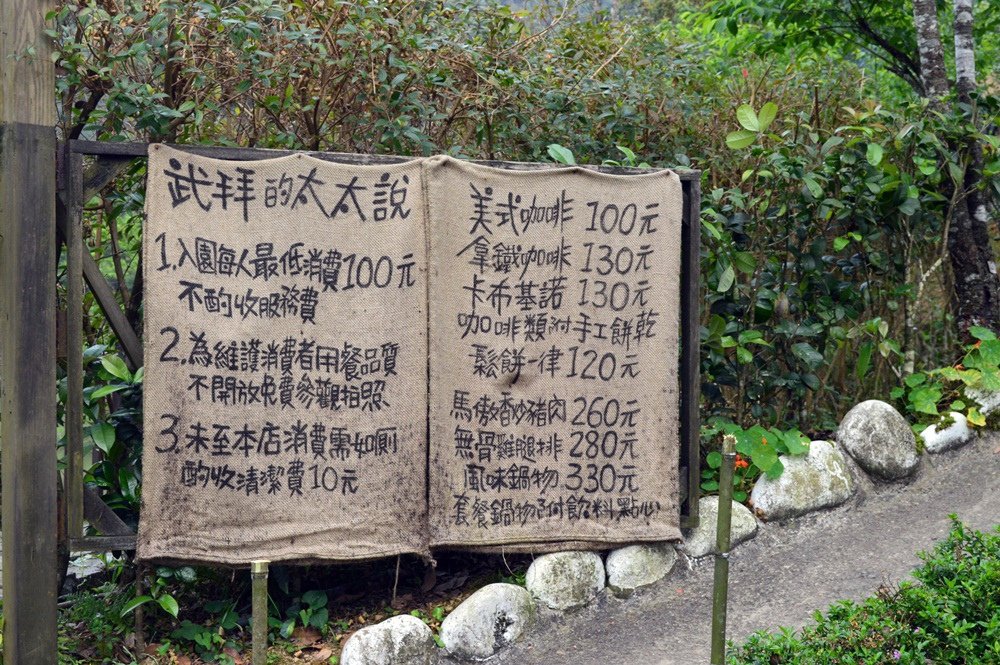 武拜的太太說
1.入園每人最低消費100元
不酌收服務費
2.為維護消費者用餐品質
不開放免費參觀拍照
3.未至本店消費需如廁
酌收清潔費10元
美式咖啡 100元
拿鐵咖啡 130元
卡布基諾 130元
咖啡類附手工餅乾
鬆餅一律120元
馬傲香炒豬肉 260元
無骨雞腿排 280元
風味鍋物 330元
套餐鍋物附飲料點心